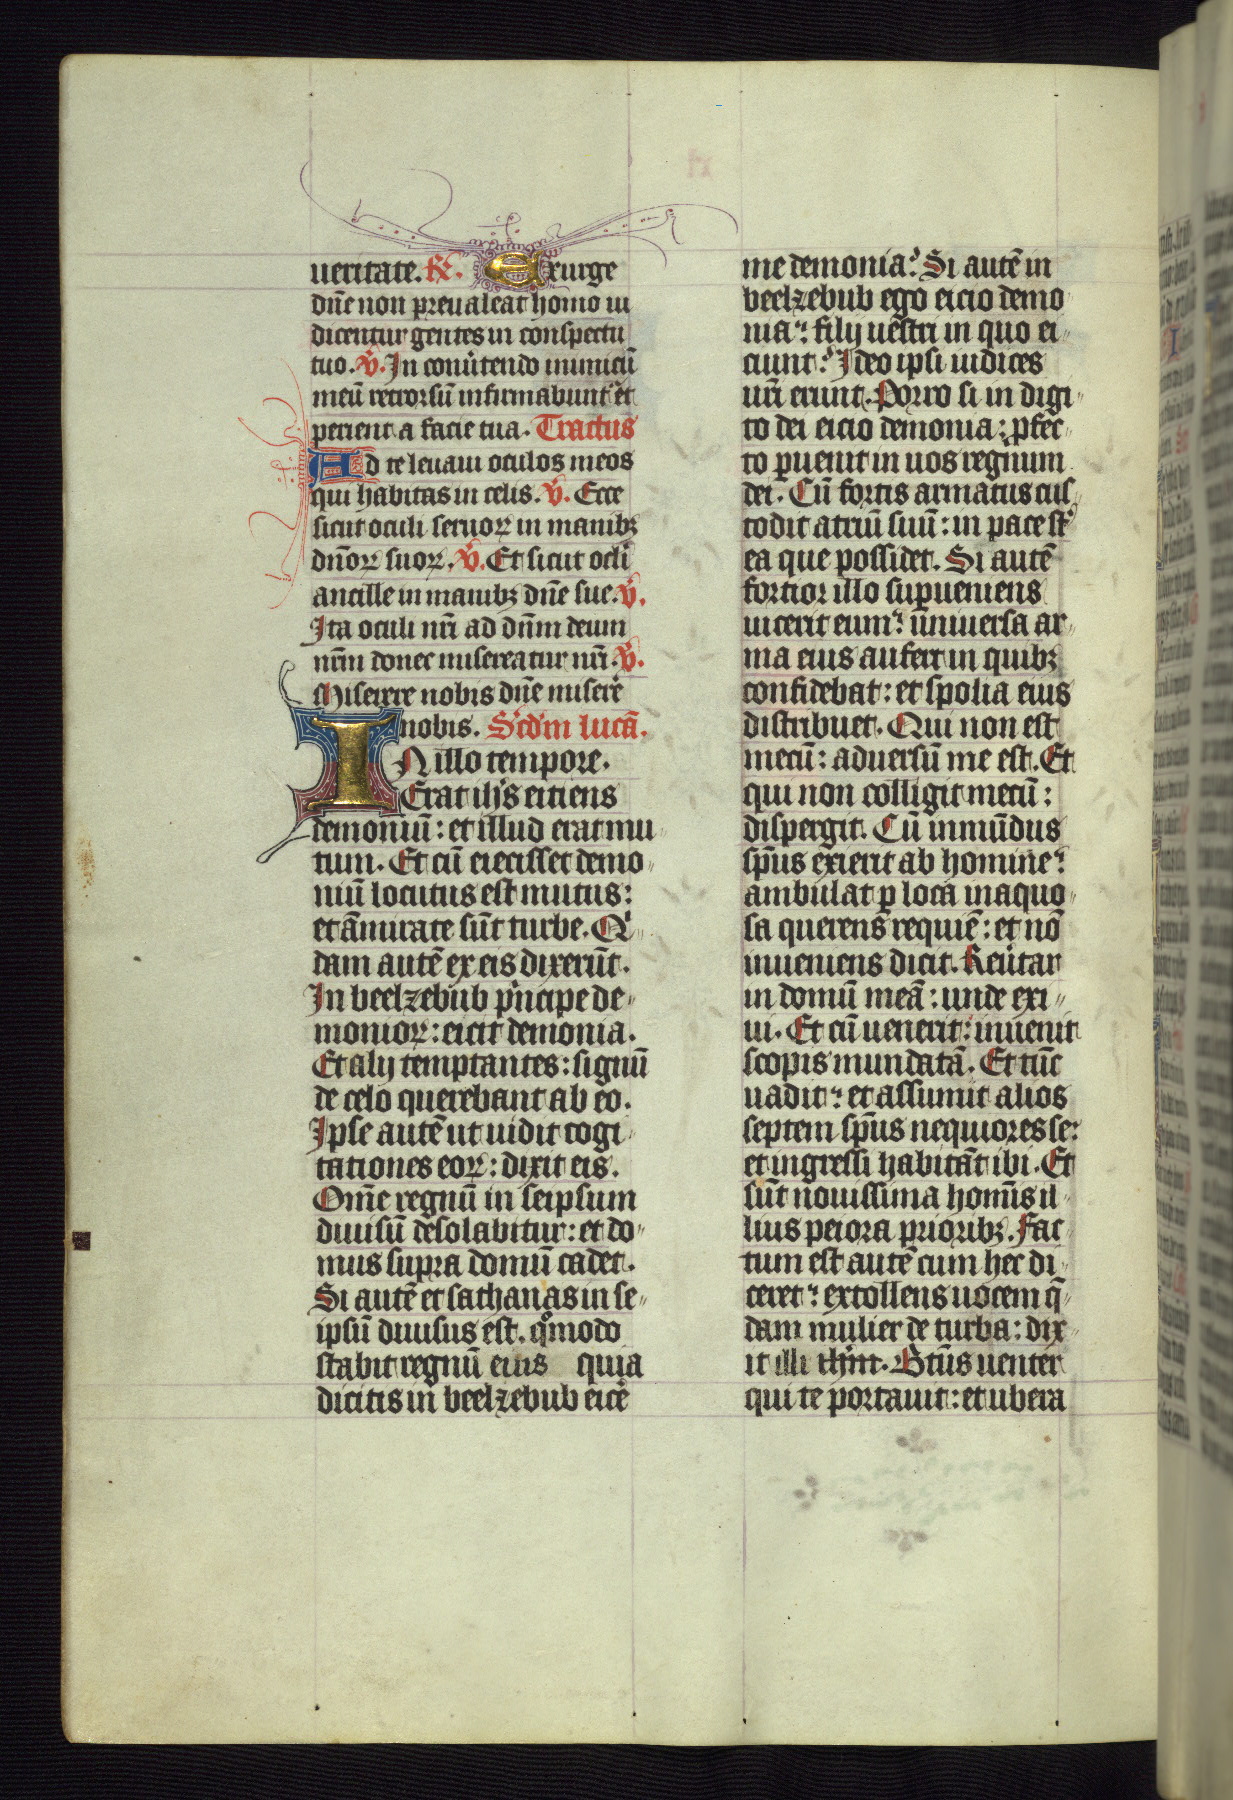 ueritate. R̃. Exurge
dñe non preualeat homo iu
dicentur gentes in conspectu
tuo. V̓. In conu̓tendo inimicũ
meũ retrorsũ infirmabunt᷒ et
perient a facie tua. Tractus
Ad te leuaui oculos meos
qui habitas in celis. V̓. Ecce
sicut oculi seruoꝝ in manibꝫ
dñoꝝ suoꝝ. V̓. Et sicut ocl̓i
ancille in manibꝫ dñe sue. V̓.
Ita oculi nr̃i ad dñm deum
nr̃m donec misereatur nr̃i. V̓.
Miserere nobis dñe miser̓e
nobis. Scd̓m lucã.
IN illo tempore.
Erat ih̓s eitiens
demoniũ: et illud erat mu
tum. Et cũ eiecisset demo
niũ locutus est mutus:
et ãmirate sũt turbe. Q̓
dam autẽ ex eis dixerũt.
In beelzebub p̓ncipe de
monioꝝ: eicit demonia.
Et alij temptantes: signũ
de celo querebant ab eo.
Ipse autẽ ut uidit cogi
tationes eoꝝ: dixit eis.
Om̃e regnũ in seipsum
diuisũ desolabitur: et do
mus supra domũ cadet.
Si autẽ et sathanas in se
ipsũ diuisus est. qͦmodo
stabit regnũ eius quia
dicitis in beelzebub eic̓e
me demonia? Si autẽ in
beelzebub ego eicio demo
nia: filij uestri in quo ei
ciunt? Ideo ipsi iudices
ur̃i erunt. Porro si in digi
to dei eicio demonia: ꝓfec
to ꝑuenit in uos regnum
dei. Cũ fortis armatus cus
todit atriũ suũ: in pace st̓
ea que possidet. Si autẽ
fortior illo suꝑueniens
uicerit eum: uniuersa ar
ma eius aufert in quibꝫ
confidebat: et spolia eius
distribuet. Qui non est
mecũ: aduersũ me est. Et
qui non colligit mecũ:
dispergit. Cũ inmũdus
sp̃us exierit ab homine:
ambulat ꝑ loca inaquo
sa querens requiẽ: et nõ
inueniens dicit. Reu̓tar
in domũ meã: unde exi
ui. Et cũ uenerit: inuenit
scopis mundatã. Et tũc
uadit: et assumit alios
septem sp̃us nequiores se:
et ingressi habitãt ibi. Et
sũt nouissima homĩs il
lius peiora prioribꝫ. Fac
tum est autẽ cum hec di
ceret: extollens uocem q̃
dam mulier de turba: dix
it illi ... Bt̃us uenter
qui te portauit: et ubera